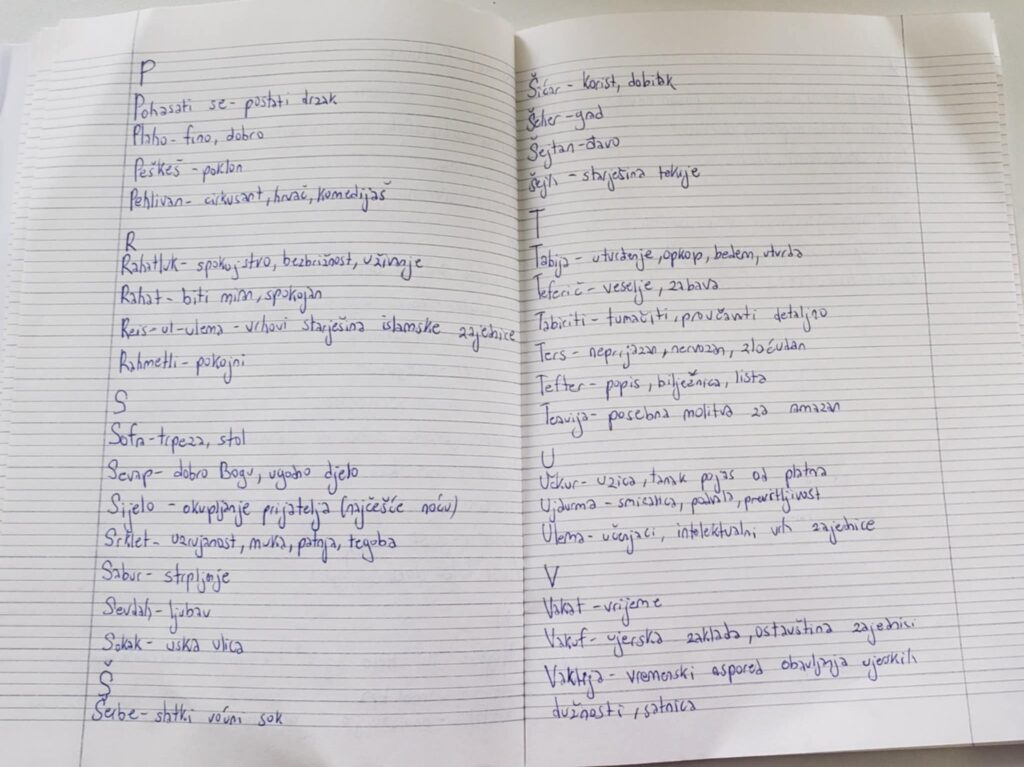 P
Pohasati se - postati drzak
Plaho - fino, dobro
Peškeš - poklon
Pehlivan - cirkusant, hrvač, komedijaš
R
Rahatluk - spokojstvo, bezbrižnost, uživnje
Rahat - biti miran, spokojan
Reis-ul-ulema - vrhovi starješina islamske zajednice
Rahmetli - pokojni
S
Sofra - trpeza, stol
Sevap - dobro Bogu, ugodno djelo
Sijelo - okupljanje prijatelja (najčešće noću)
Srklet - uzrujanost, muka, patnja, tegoba
Sabur - strpljenje
Sevdah - ljubav
Sokak - uska ulica
Š
Šerbe - slatki voćni sok
Šićar - korist, dobitak
Šeher - grad
Šejtan - đavo
Šejh - starješina tekije
T
Tabija - utvrđenje, opkop, bedem, utvrda
Teferič - veselje, zabava
Tabiriti - tumačiti, proučavati detaljno
Ters - neprijazan, nervozan, zloćudan
Tefter - popis, bilježnica, lista
Teravija - posebna molitva za ramazan
U
Učkur - uzica, tanak pojas od platna
Ujdurma - smicalica, prevrtljivost
Ulema - učenjaci, intelektualni vrh zajednice
V
Vakat - vrijeme
Vakuf - vjerska zaklada, ostavština zajednici
Vaktija - vremenski raspored obavljanja vjerskih
dužnosti, satnica